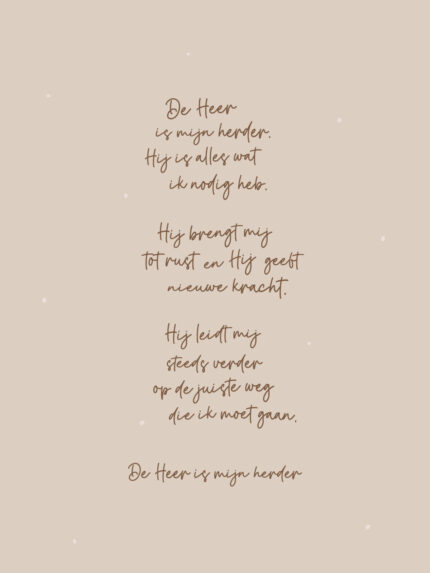 De Heer
is mijn herder.
Hij is alles wat
ik nodig heb.
Hij brengt mij
tot rust en Hij geeft
nieuwe kracht.
Hij leidt mij
steeds verder
op de juiste weg
die ik moet gaan.
De Heer is mijn herder